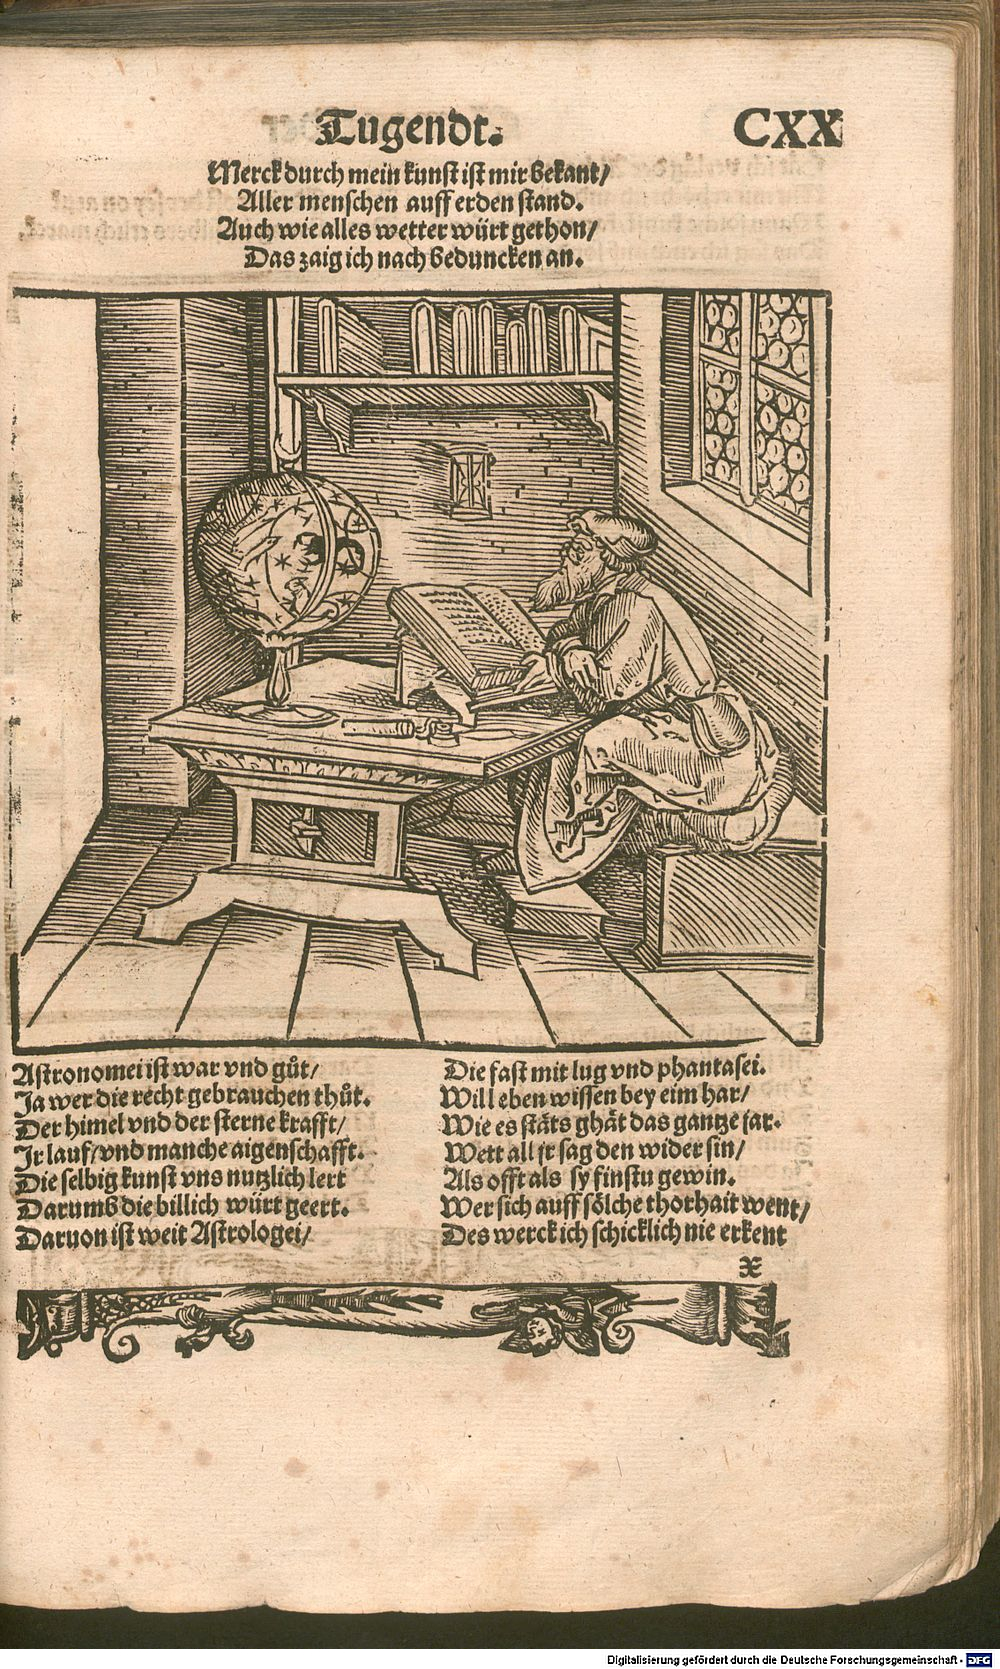 Tugendt. CXX
Merck durch mein kunst ist mir bekant/
Aller menschen auff erden stand.
Auch wie alles wetter würt gethon/
Das zaig ich nach beduncken an.
Astronomei ist war vnd gůt/
Ja wer die recht gebrauchen thůt.
Der himel vnd der sterne krafft/
Jr lauf/vnd manche aigenschafft.
Die selbig kunst vns nutzlich lert
Darumb die billich würt geert.
Daruon ist weit Astrologei/
Die fast mit lug vnd phantasei.
Will eben wissen bey eim har/
Wie es stäts ghät das gantze jar.
Wett all jr sag den wider sin/
Als offt als sy finstu gewin.
Wer sich auff sölche thorhait went/
Des werck ich schicklich nie erkent
x
Digitalisierung gefördert durch die Deutsche Forschungsgemeinschaft - DFG